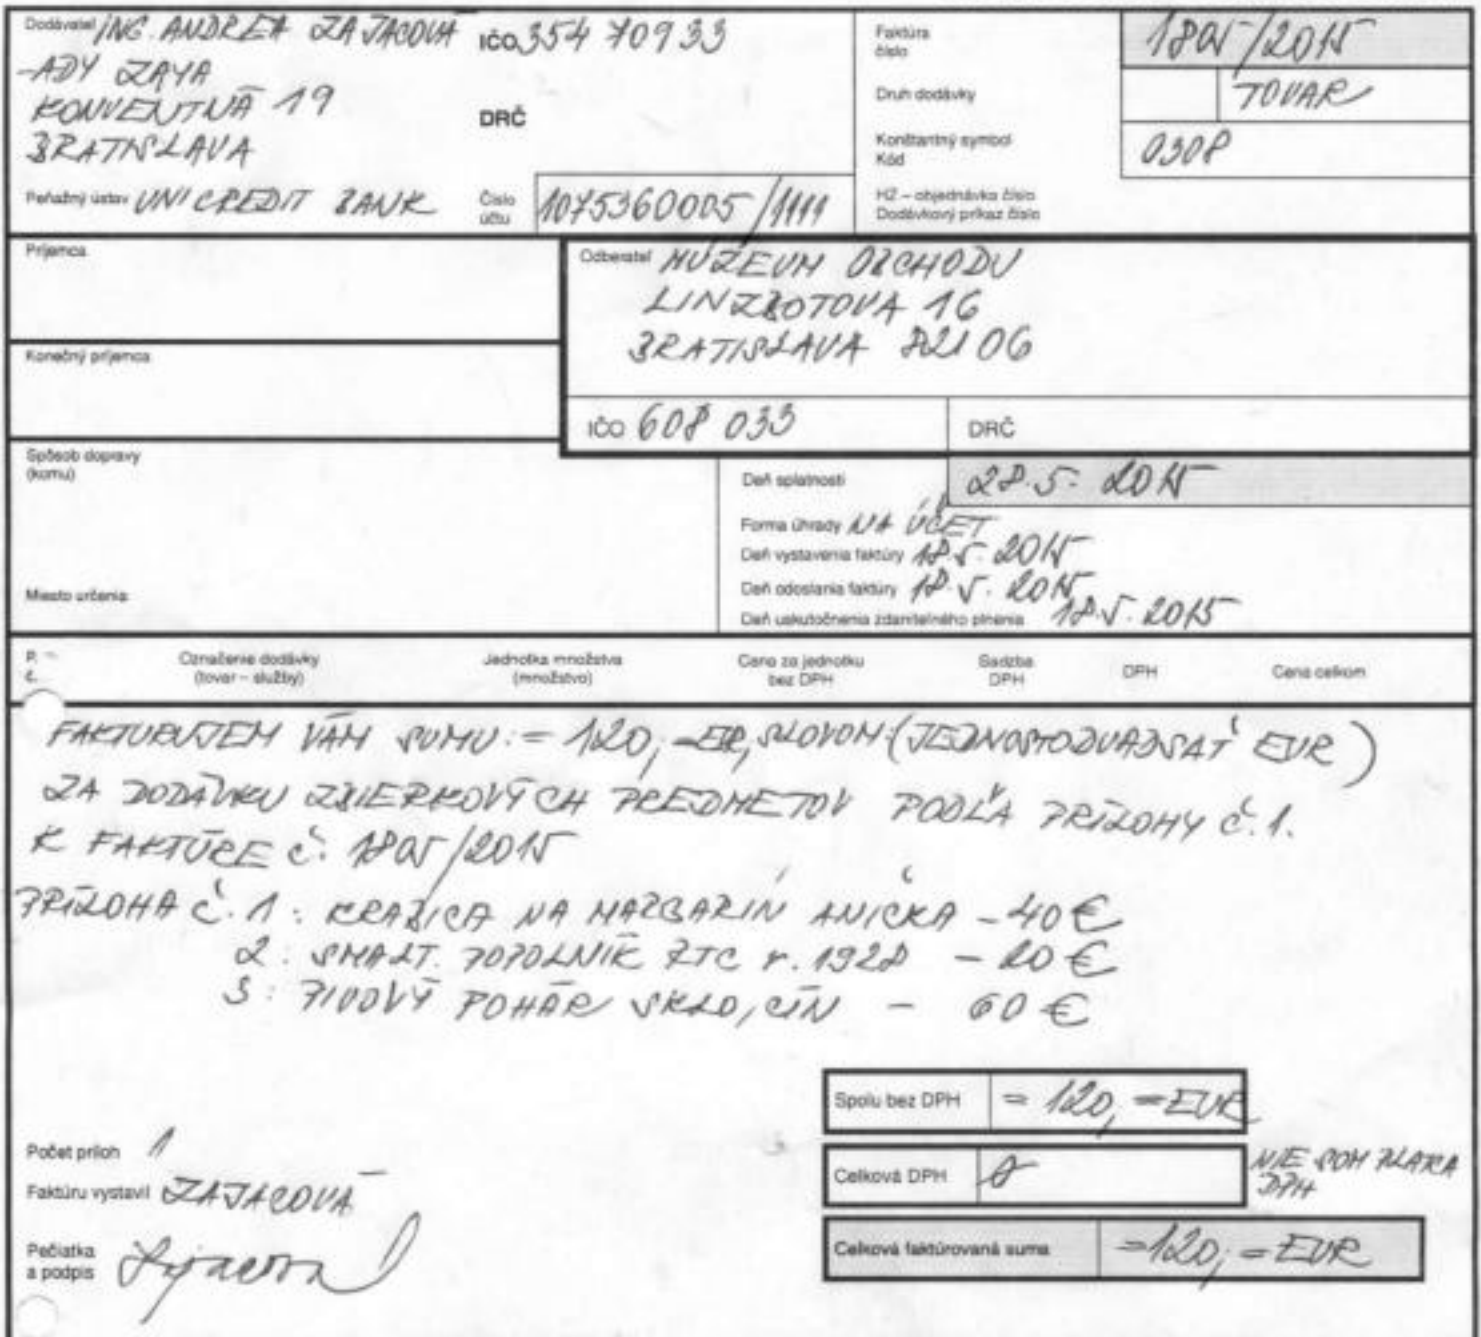 Dodávateľ ING. ANDREA ZAJACOVÁ IČO 354 70933
-ADY ZAYA
KONVENTNÁ 19
DRČ
BRATISLAVA
Peňažný ústav UNICREDIT BANK Číslo účtu 1075360005/1111
Faktúra číslo 1805/2015
Druh dodávky TOVAR
Konštantný symbol Kód 0308
HZ – objednávka číslo
Dodávkový príkaz číslo
Príjemca
Odberateľ MÚZEUM OBCHODU
LINZBOTOVA 16
BRATISLAVA 82106
Konečný príjemca
IČO 608 033 DRČ
Spôsob dopravy
(komu)
Miesto určenia
Deň splatnosti 28.5. 2015
Forma úhrady NA ÚČET
Deň vystavenia faktúry 18.5. 2015
Deň odoslania faktúry 18.5. 2015
Deň uskutočnenia zdaniteľného plnenia 18.5. 2015
P. č. Označenie dodávky (tovar – služby) Jednotka množstva (množstvo) Cena za jednotku bez DPH Sadzba DPH DPH Cena celkom
FAKTURUJEM VÁM SUMU: = 120,-EUR, SLOVOM: (JEDNOSTODVADSAŤ EUR)
ZA DODÁVKU ZBIERKOVÝCH PREDMETOV PODĽA PRÍLOHY Č. 1.
K FAKTÚRE Č. 1805/2015
PRÍLOHA Č. 1: KRABICA NA MARGARÍN ANIČKA - 40 €
2: SMALT. POPOLNÍK PTC r. 1928 - 20 €
3: PIVOVÝ POHÁR SKLO, CÍN - 60 €
Spolu bez DPH = 120,= EUR
Počet príloh 1
Celková DPH 0 NIE SOM PLATCA DPH
Faktúru vystavil ZAJACOVÁ
Pečiatka
a podpis Zajacová
Celková faktúrovaná suma =120,= EUR